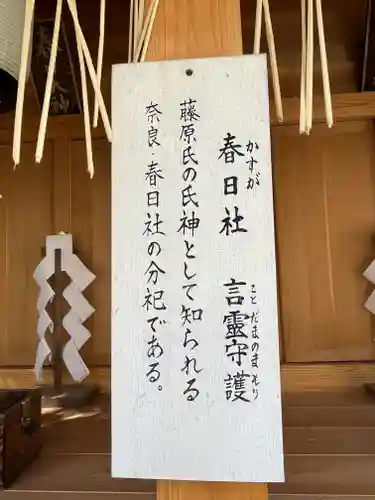 春日社 言霊守護
かすが ことだまのまもり
藤原氏の氏神として知られる
奈良・春日社の分祀である。